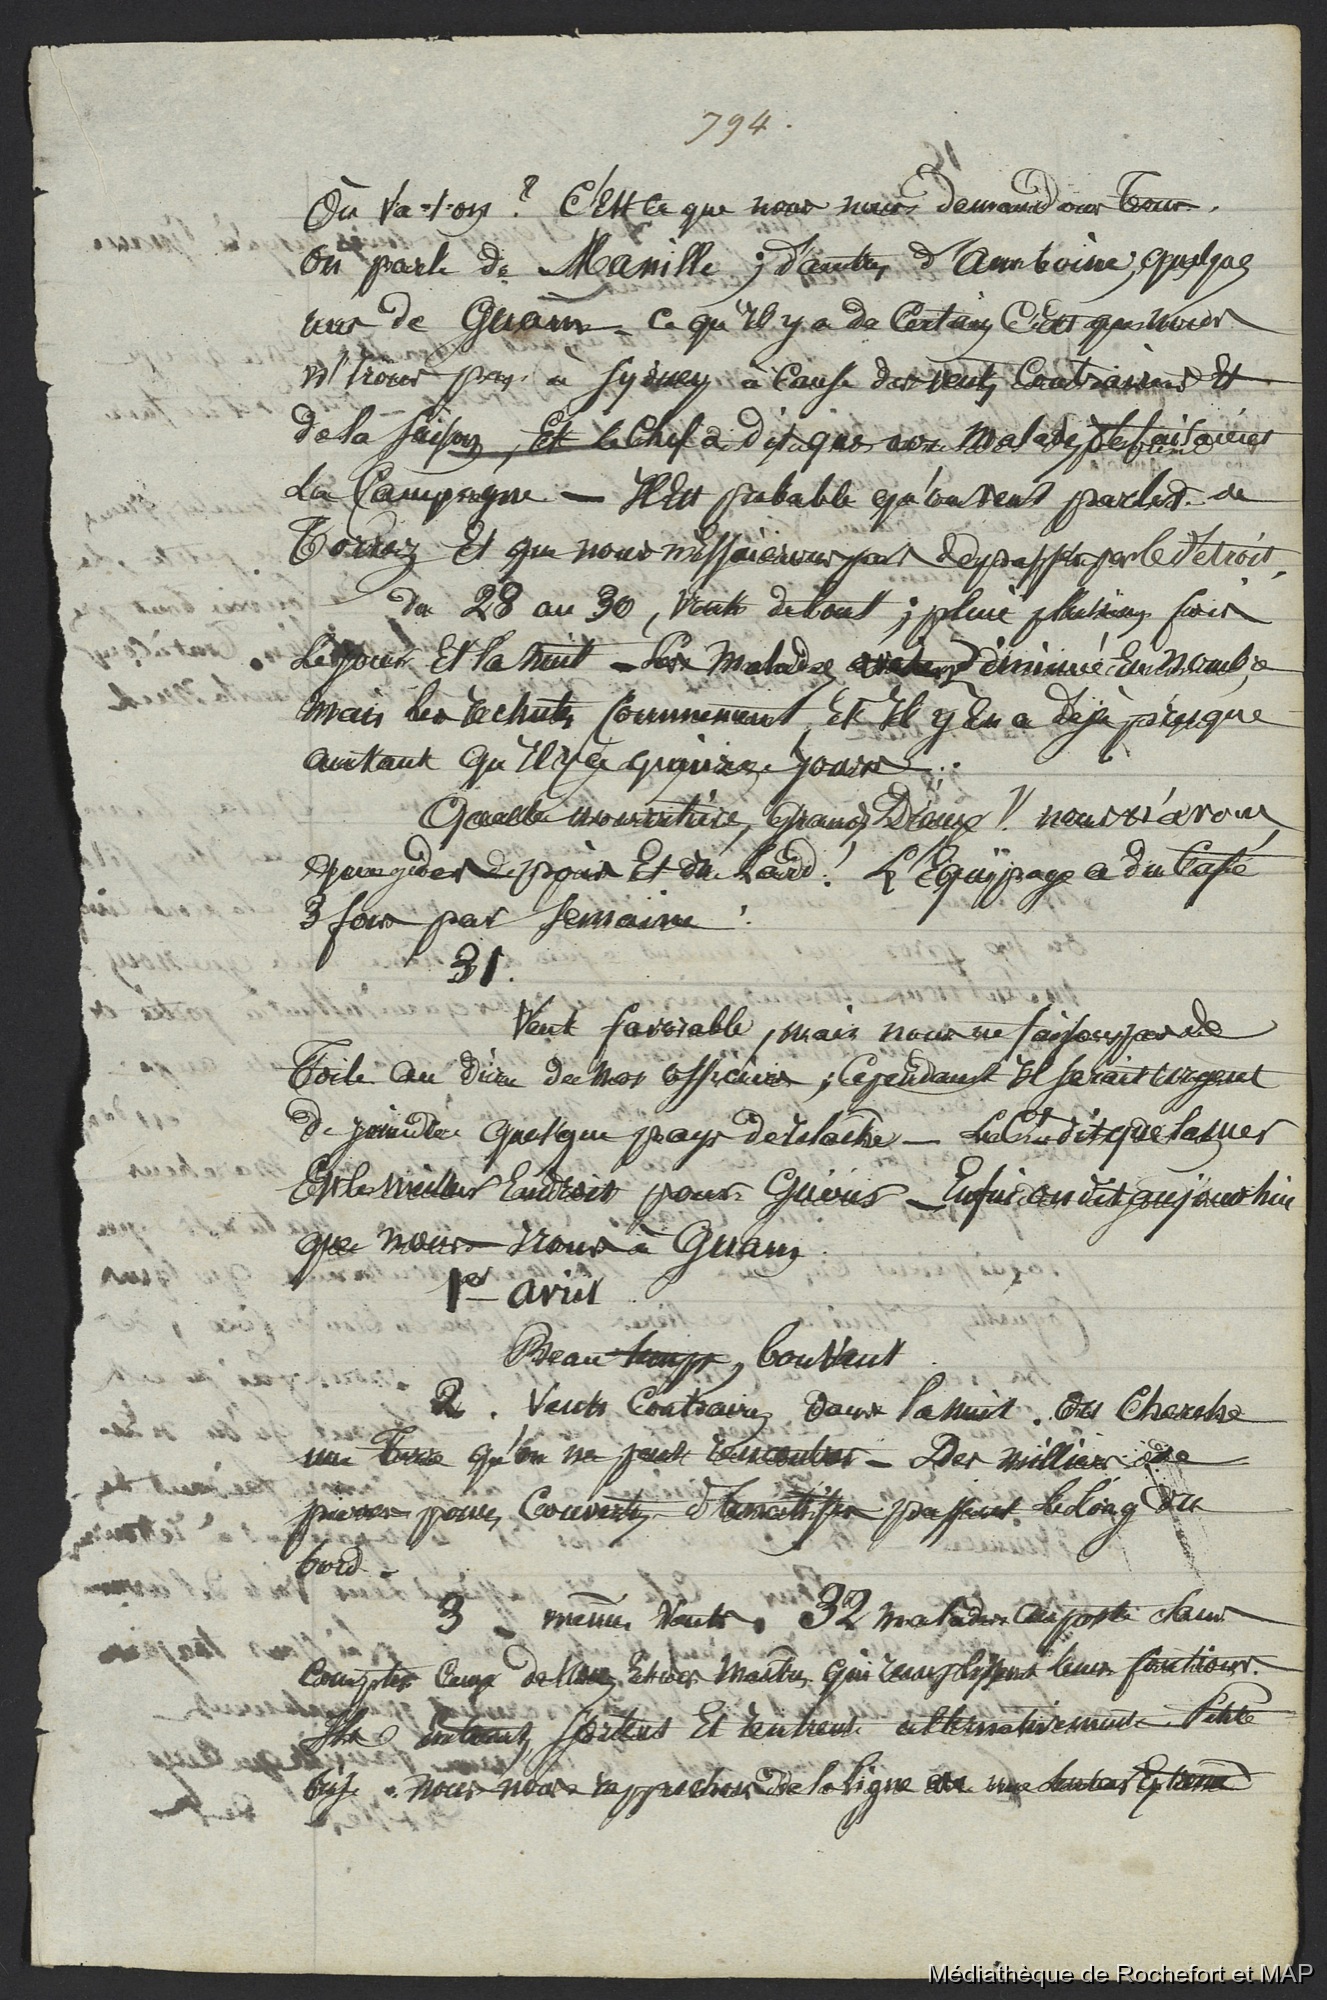 794.
Où va-t-on ? C'est ce que nous nous demandons tous.
On parle de Manille ; d'autres d'Amboine, quelques
uns de Guam - ce qu'il y a de certain c'est que nous
n'irons pas à Sydney à cause des vents contraires et
de la saison, Et le chef a dit que nos malades
La Campagne — Il est probable qu'on veut parler de
Torrez Et que nous n'essaierons pas de passer par le détroit.
du 28 au 30, vents debout ; pluie plusieurs fois
le jour Et la nuit - Les malades diminué en nombre
mais les rechutes commencent Et il y en a déjà presque
autant qu'il y a quinze jours.
Quelle nourriture, grands Dieux !! nous n'avons
que des pois Et du Lard ! L'Equipage a du café
3 fois par semaine !
31.
Vent favorable, mais nous ne faisons pas de
Toile au dire de nos officiers ; cependant il serait urgent
de joindre quelque pays de relache — Le Ct dit que la mer
Est le meilleur Endroit pour Guérir — Enfin on dit aujourd'hui
que nous irons à Guam
1er avril
Beau temps, bon vent
2. Vents contraires dans la nuit. On cherche
une Terre qu'on ne peut rencontrer - Des milliers de
pierres ponces couvertes passent le long du
bord -
3 - même vents. 32 malades au poste sans
compter ceux de Et des Maitres qui remplissent leurs fonctions.
Ils entrent, sortent Et rentrent alternativement. Petite
brise. nous nous rapprochons de la ligne une
Médiathèque de Rochefort et MAP